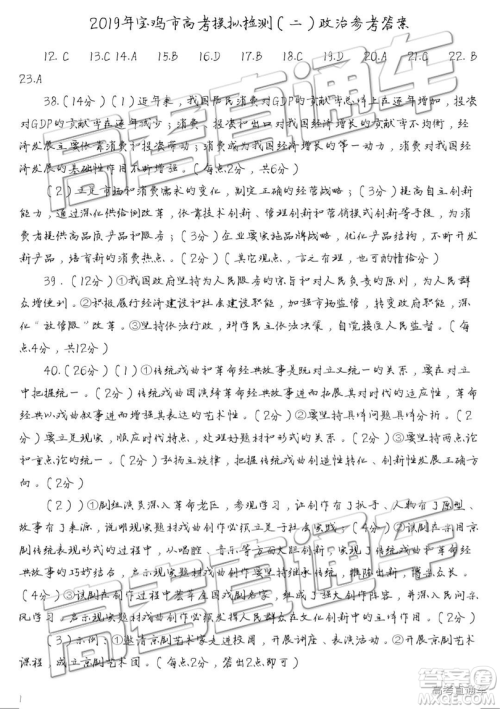 2019年宝鸡市高考模拟检测(二)政治参考答案
12.C 13.C 14.A 15.B 16.C 17.D 18.B 19.D 20.A 21.C 22.B
23.A
38.(14分)(1)近年来,我国居民消费对GDP的贡献率总体上在逐年增加,投资
对GDP的贡献率在逐年减少;消费、投资和出口对我国经济增长的贡献率不均衡,经
济发展主要依靠消费和投资带动;消费成为我国经济增长的第一动力,消费对经济发
展的基础性作用不断增强。(每点2分,共6分)
(2)立足市场和消费需求的变化,制定正确的经营战略;(2分)提高自主创新
能力,通过深化供给侧改革,依靠技术创新、管理创新和营销模式创新等手段,为消
费者提供高品质产品和服务;(3分)企业要实施品牌战略,优化产品结构,不断开发
新产品,培育新的消费热点。(3分)(其它观点,言之有理,也可酌情给分)
39.(12分)①我国政府坚持为人民服务的宗旨和对人民负责的原则,为人民群
众增便利。②积极履行经济建设和社会建设职能,加强市场监管,转变政府职能,深
化“放管服”改革。③坚持依法行政,科学民主依法决策,自觉接受人民监督。(每
点4分,共12分)
40.(26分)(1)①传统戏曲和革命经典故事是既对立又统一的关系,要在对立
中把握统一。(2分)传统戏曲因演绎革命经典故事进而拓展其对时代的适应性,革命
经典以戏曲叙事进而增强其表达的艺术性。(2分)②要坚持具体问题具体分析。(2
分)③要立足现实,顺应时代特点,处理好题材和形式的关系。(2分)④要坚持两点论
和重点论的统一。(2分)弘扬主旋律,把握传统戏曲创造性转化、创新性发展正确方
向。(2分)
(2)①剧组演员深入革命老区,参观学习,让创作有了抓手、人物有了原型、
故事有了来源,说明现实题材戏曲创作必须立足于社会实践。(4分)②该剧在采用京
剧传统表现形式的过程中,从唱腔、音乐等方面大胆创新,实现了京剧艺术与革命经
典故事的巧妙结合,启示现实题材戏曲创作要坚持继承传统,推陈出新,博采众长。
(4分)③该剧在创作过程中荟萃全国戏剧名家,组成了强大创作阵容,掀起了大众学习
风。启示现实题材戏曲创作必须发挥人民群众在文化创新中的主体作用。(4分)
(3)示例:①邀请京剧艺术家走进校园,开展讲座、表演活动。②开展京剧艺术
课程,成立京剧艺术团。(每点2分,答出2点即可)
高考直通车
答案圈
高考直通车